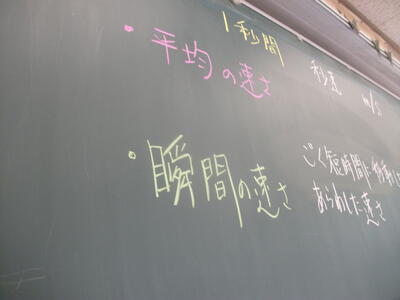 1秒間
・平均の速さ 秒速 m/s
・瞬間の速さ ごく短時間に移動した
あらわした速さ